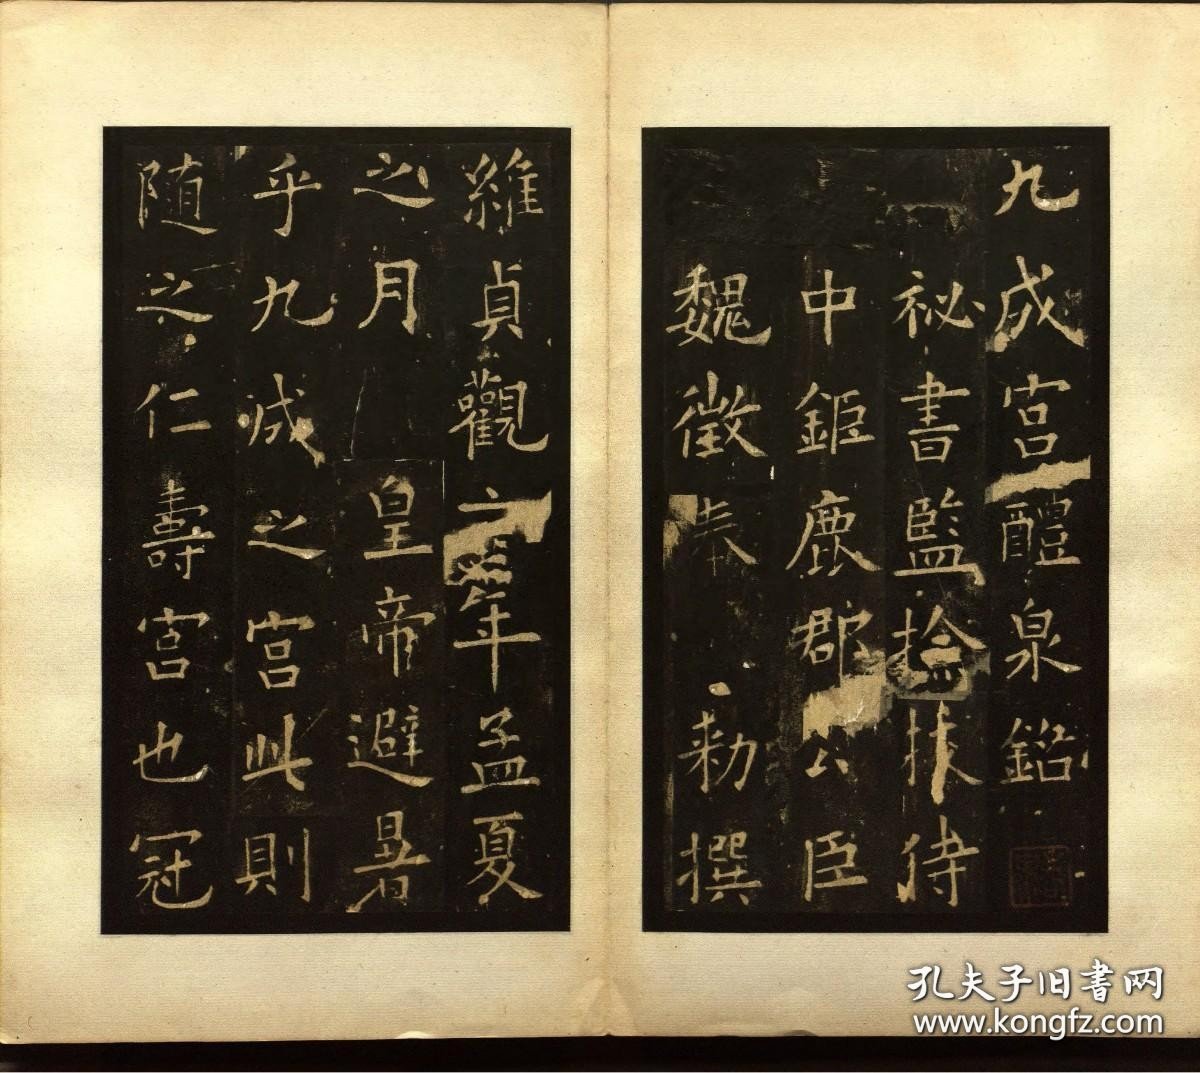 九成宮醴泉銘
祕書監撿挍侍
中鉅鹿郡公臣
魏徵奉勑撰
維貞觀六年孟夏
之月皇帝避暑
乎九成之宮此則
随之仁壽宮也冠
孔夫子旧书网
www.kongfz.com